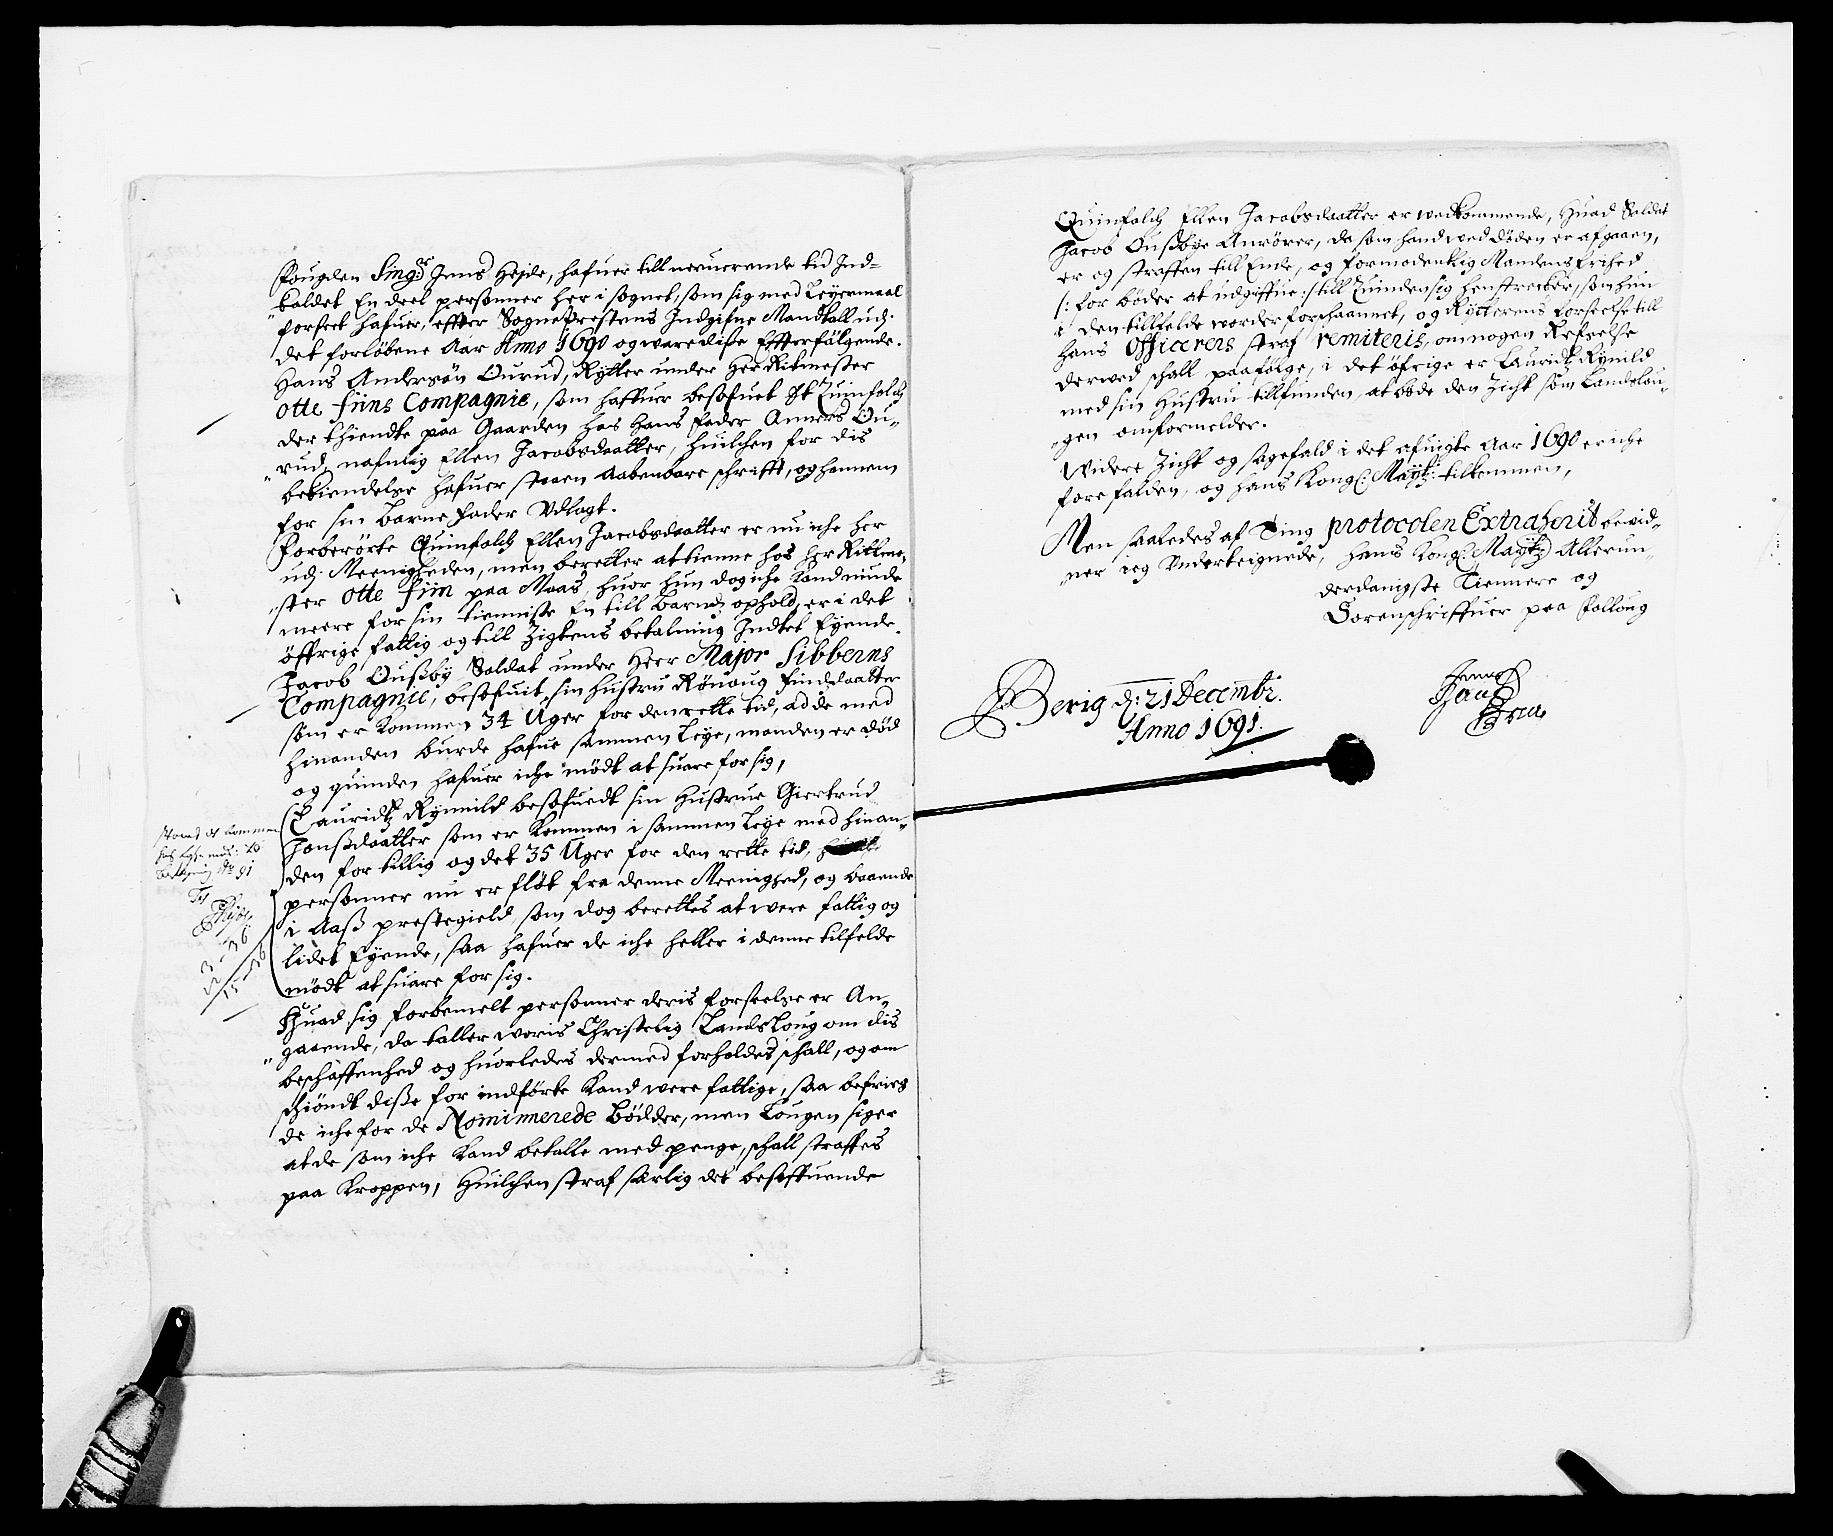 Fougden Sing.r Jens Hejde, hafuer till neruerende tid Ind-
kaldet En deel personner her i sognet, som sig med Leyermaal
forseet hafuer, effter Sogneprestens Indgifne Mandtall udj
det forløbene Aar Anno 1690 og ware disse Effterfølgende.
Hans Andersøn Ourud, Rytter under Her Ritmester
Otte Fiins Compagnie, som haffuer besofuet Et Quinfolch
der thiendte paa Gaarden hos Hans Fader Anners Ou-
rud, nafnlig Ellen Jacobsdaatter, huilchen for dis
bekiendelse hafuer staaen Aabenbare schrifft, og hannem
for sin Barne Fader Udlagt.
Forberørte Quinfolch Ellen Jacobsdaatter er nu iche her
udj Meenigheden, men beretter at tienne hos her Ritme-
ster Otte Fiin paa Moss, huor hun dog iche kand niude
meere for sin tienniste En till Barnds ophold, er i det
øffrige fattig og till Zigtens betalning Indtet Eyende.
Jacob Oussby Soldat under Herr Major Sibberns
Compagnie, besofuit sin hustru Rønoug Findsdaatter
som er kommen 34 Uger for den rette tid, ad de med
hinanden burde hafue sammen leye, manden er død
og quinden hafuer iche mødt at suare for sig,
Lauridtz Rynnild besofuedt sin Hustrue Giertrud
Jonssdaatter som er kommen i sammen leye med hinan-
den for tillig og det 35 Uger for den rette tid,
personner nu er fløt fra denne Meenighed, og boaende
i Aass prestegield, som dog berettes at were fattig og
lidet Eyende, saa hafuer de iche heller i denne tilfelde
mødt at suare for sig.
Huad sig forbemelt personner deris forseelse er An-
gaaende, da taller woris Christelig Lands Loug om dis
beschaffenhed og huorledes dermed forholdes schall, og om
schiøndt disse for indførte kand were fattige, saa befries
de iche for de Nominnerede Bødder, men Lougen siger
at de som iche kand betalle med penge, schall straffes
paa kroppen, Huilchen straf særlig det besoffuende
Quinfolch Ellen Jacobsdaatter er wedkommende, Huad Soldat
Jacob Oussbye Anrører, da som hand wed døden er afgaaen,
er og straffen till Ende, og formodentlig Mandens frihed
/: for bøder at udgiffue :/ till Quinden sig henstrecker, som hun
i den tillfelde worder forschaannet, og Rytterens forseelse till
hans Officerers straf remiteris, om nogen Refselse
derwed schall paafølge, i det øfrige er Lauridtz Rynild
med sin Hustru tillfunden, at bøde den Zicht som Landslou-
gen omformelder.
Widere Zicht og sagefald i det afuigte Aar 1690 er iche
forefalden, og hans Kongl: Maytz: tilkommen,
Men saaledes af Ting protocolen Extraherit bewid-
ner ieg Underteignede, Hans Kongl: Maytz: Allerun-
derdanigste Tiennere og
Sorenschriffuer paa Folloug
Berig d: 21 Decembr.
Anno 1691.